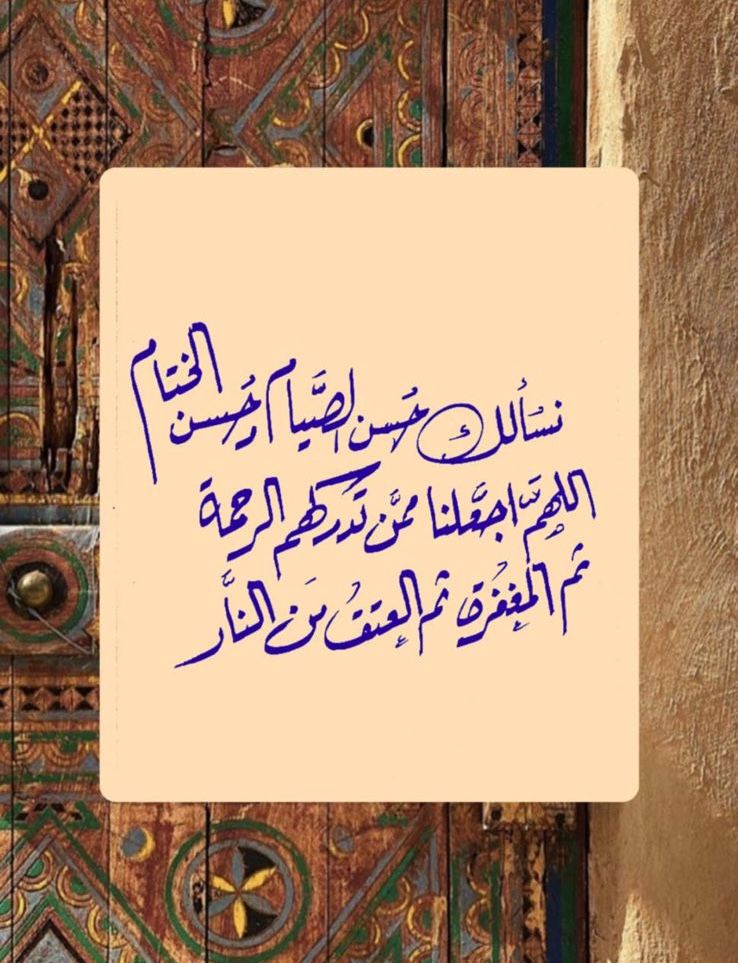 نسألك حُسن الصَّيام وحُسن الختام
اللهمَّ اجعَلنا ممَّن تدركهم الرحمة
ثم المغفُرة ثم العِتقُ مَن النَّار